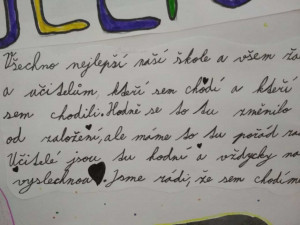 Všechno nejlepší naší škole a všem
a učitelům kteří sem chodí a kteří
sem chodili. Hodně se to tu změnilo
od založení, ale máme to tu pořád
Učitelé jsou tu hodní a vždycky
vyslechnou. Jsme rádi, že sem chodíme